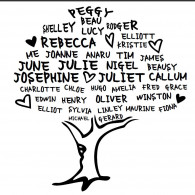 PEGGY
BEAU
SHELLEY RODGER
LUCY
REBECCA ELLIOTT
KRISTIE
ME JOANNE ANARU TIM JAMES
JUNE JULIE NIGEL BEAUSY
JOSEPHINE JULIET CALLUM
CHARLOTTE CHLOE HUGO AMELIA FRED GRACE
EDWIN HENRY OLIVER WINSTON
ELLIOT SYLVIA LINLEY MAURINE FIONA
MICHAEL GERARD